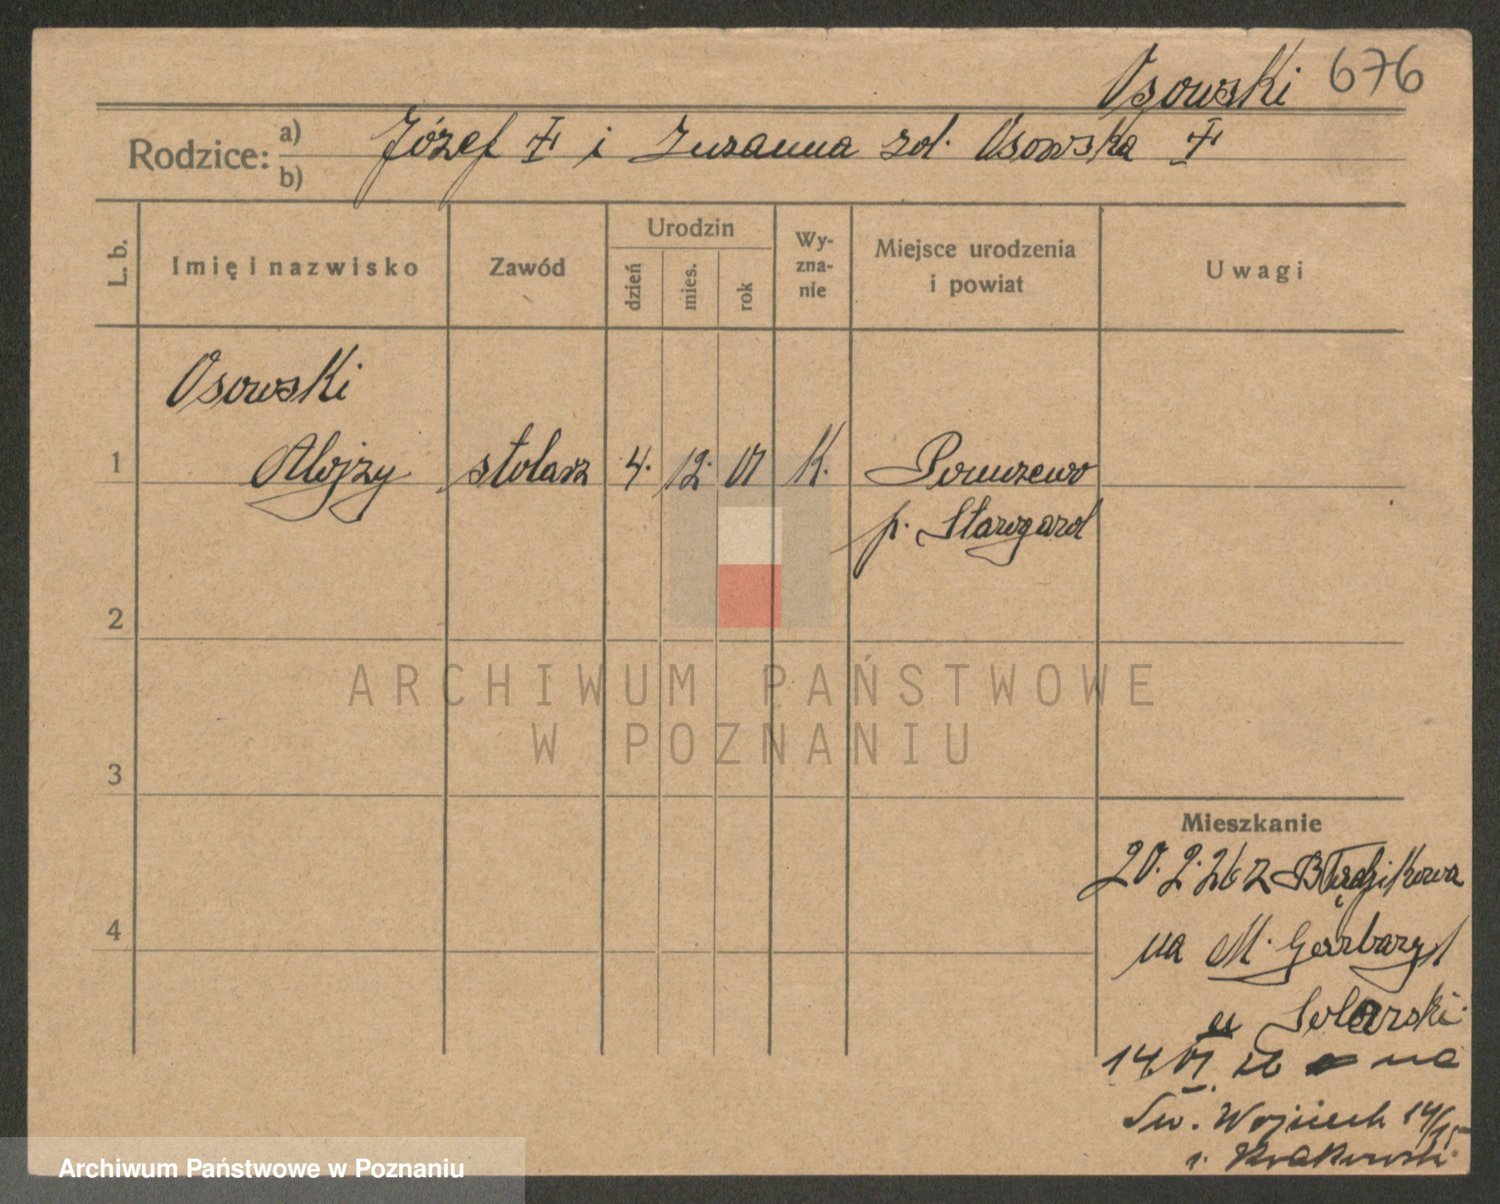 Osowski 676
Rodzice: a) b) Józef ‡ i Zuzanna zd. Osowska ‡
L. b.
Imię i nazwisko
Zawód
Urodzin
dzień
mies.
rok
Wy-
zna-
nie
Miejsce urodzenia
i powiat
Uwagi
Osowski
1 Alojzy stolarz 4. 12. 01 K.
p. Starogard
2
ARCHIWUM PAŃSTWOWE
W POZNANIU
3
Mieszkanie
20. 2. 26 z
4
na M. Garbary 1
u
14 VI 26 na
Św. Wojciech 14/15
Archiwum Państwowe w Poznaniu